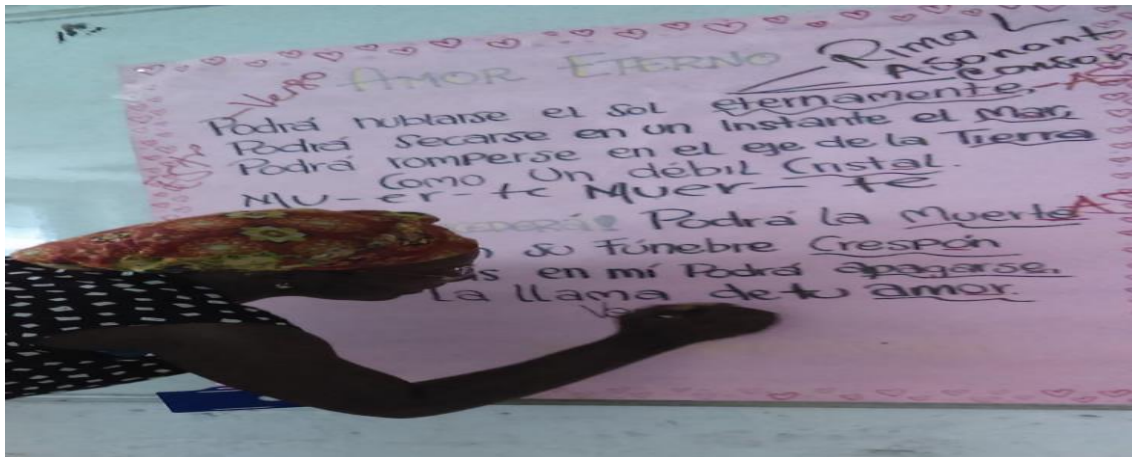 AMOR ETERNO
Rima
Asonant
Conson
Verso
Podrá nublarse el sol eternamente,
Podrá secarse en un instante el Mar,
Podrá romperse en el eje de la Tierra
Como Un débil Cristal.
MU-er-te Muer-te
Podrá la Muerte
su Fúnebre Crespón
en mí Podrá apagarse
La llama de tu amor.